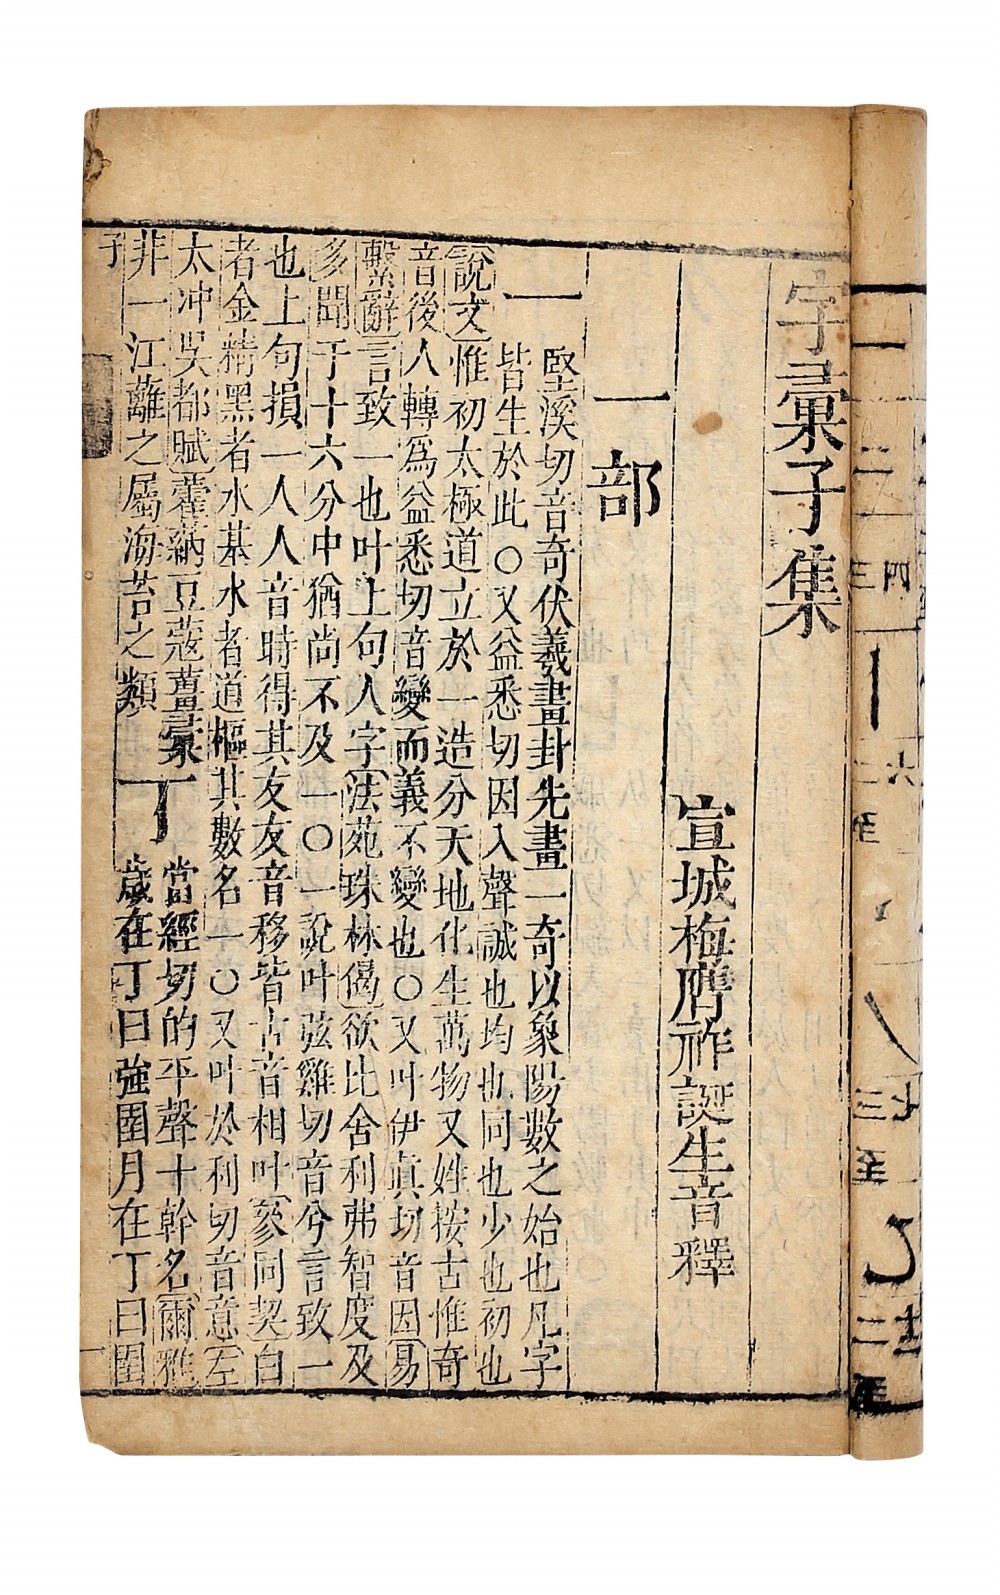 字彚子集
宣城梅膺祚誕生音釋
一部
一
堅溪切音奇伏羲畫卦先畫一奇以象陽數之始也凡字
皆生於此○又益悉切因入聲誠也均也同也少也初也
說文惟初太極道立於一造分天地化生萬物又姓按古惟奇
音後人轉爲益悉切音變而義不變也○又叶伊真切音因易
繫辭言致一也叶上句人字法苑珠林偈欲比舍利弗智度及
多聞于十六分中猶尚不及一○一說叶弦雞切音兮言致一
也上句損一人人音時得其友友音移皆古音相叶參同契白
者金精黑者水基水者道樞其數名一○又叶於利切音意左
太冲吳都賦藿蒳豆蔻薑彚
非一江蘺之屬海苔之類
丁
當經切的平聲十幹名爾雅
歲在丁曰強圉月在丁曰圉
子
一